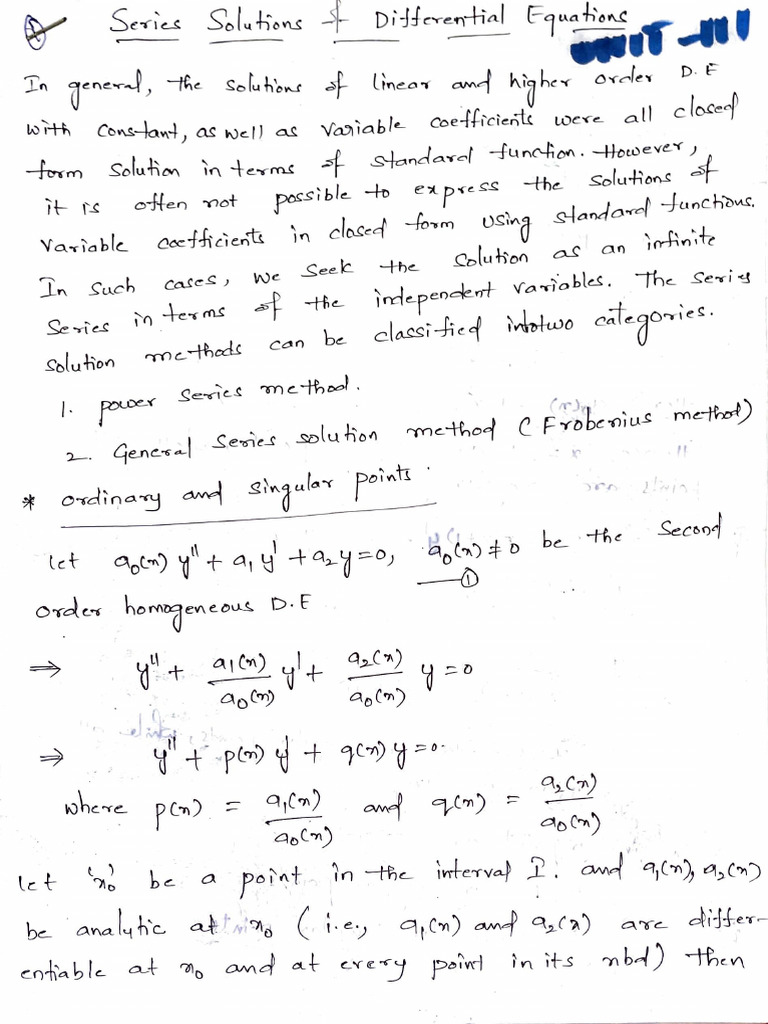 Series Solutions of Differential Equations
UNIT-III
In general, the solutions of linear and higher order D.E
with constant, as well as variable coefficients were all closed
form solution in terms of standard function. However,
it is often not possible to express the solutions of
variable coefficients in closed form using standard functions.
In such cases, we seek the solution as an infinite
series in terms of the independent variables. The series
solution methods can be classified into two categories.
1. power series method.
2. General series solution method (Frobenius method)
* ordinary and singular points.
let a₀(x) y'' + a₁ y' + a₂ y = 0, a₀(x) ≠ 0 be the second
①
order homogeneous D.E
⇒ y'' + a₁(x)/a₀(x) y' + a₂(x)/a₀(x) y = 0
⇒ y'' + p(x) y' + q(x) y = 0.
where p(x) = a₁(x)/a₀(x) and q(x) = a₂(x)/a₀(x)
let 'x₀' be a point in the interval I. and a₁(x), a₂(x)
be analytic at x₀ (i.e., a₁(x) and a₂(x) are differ-
entiable at x₀ and at every point in its nbd) then